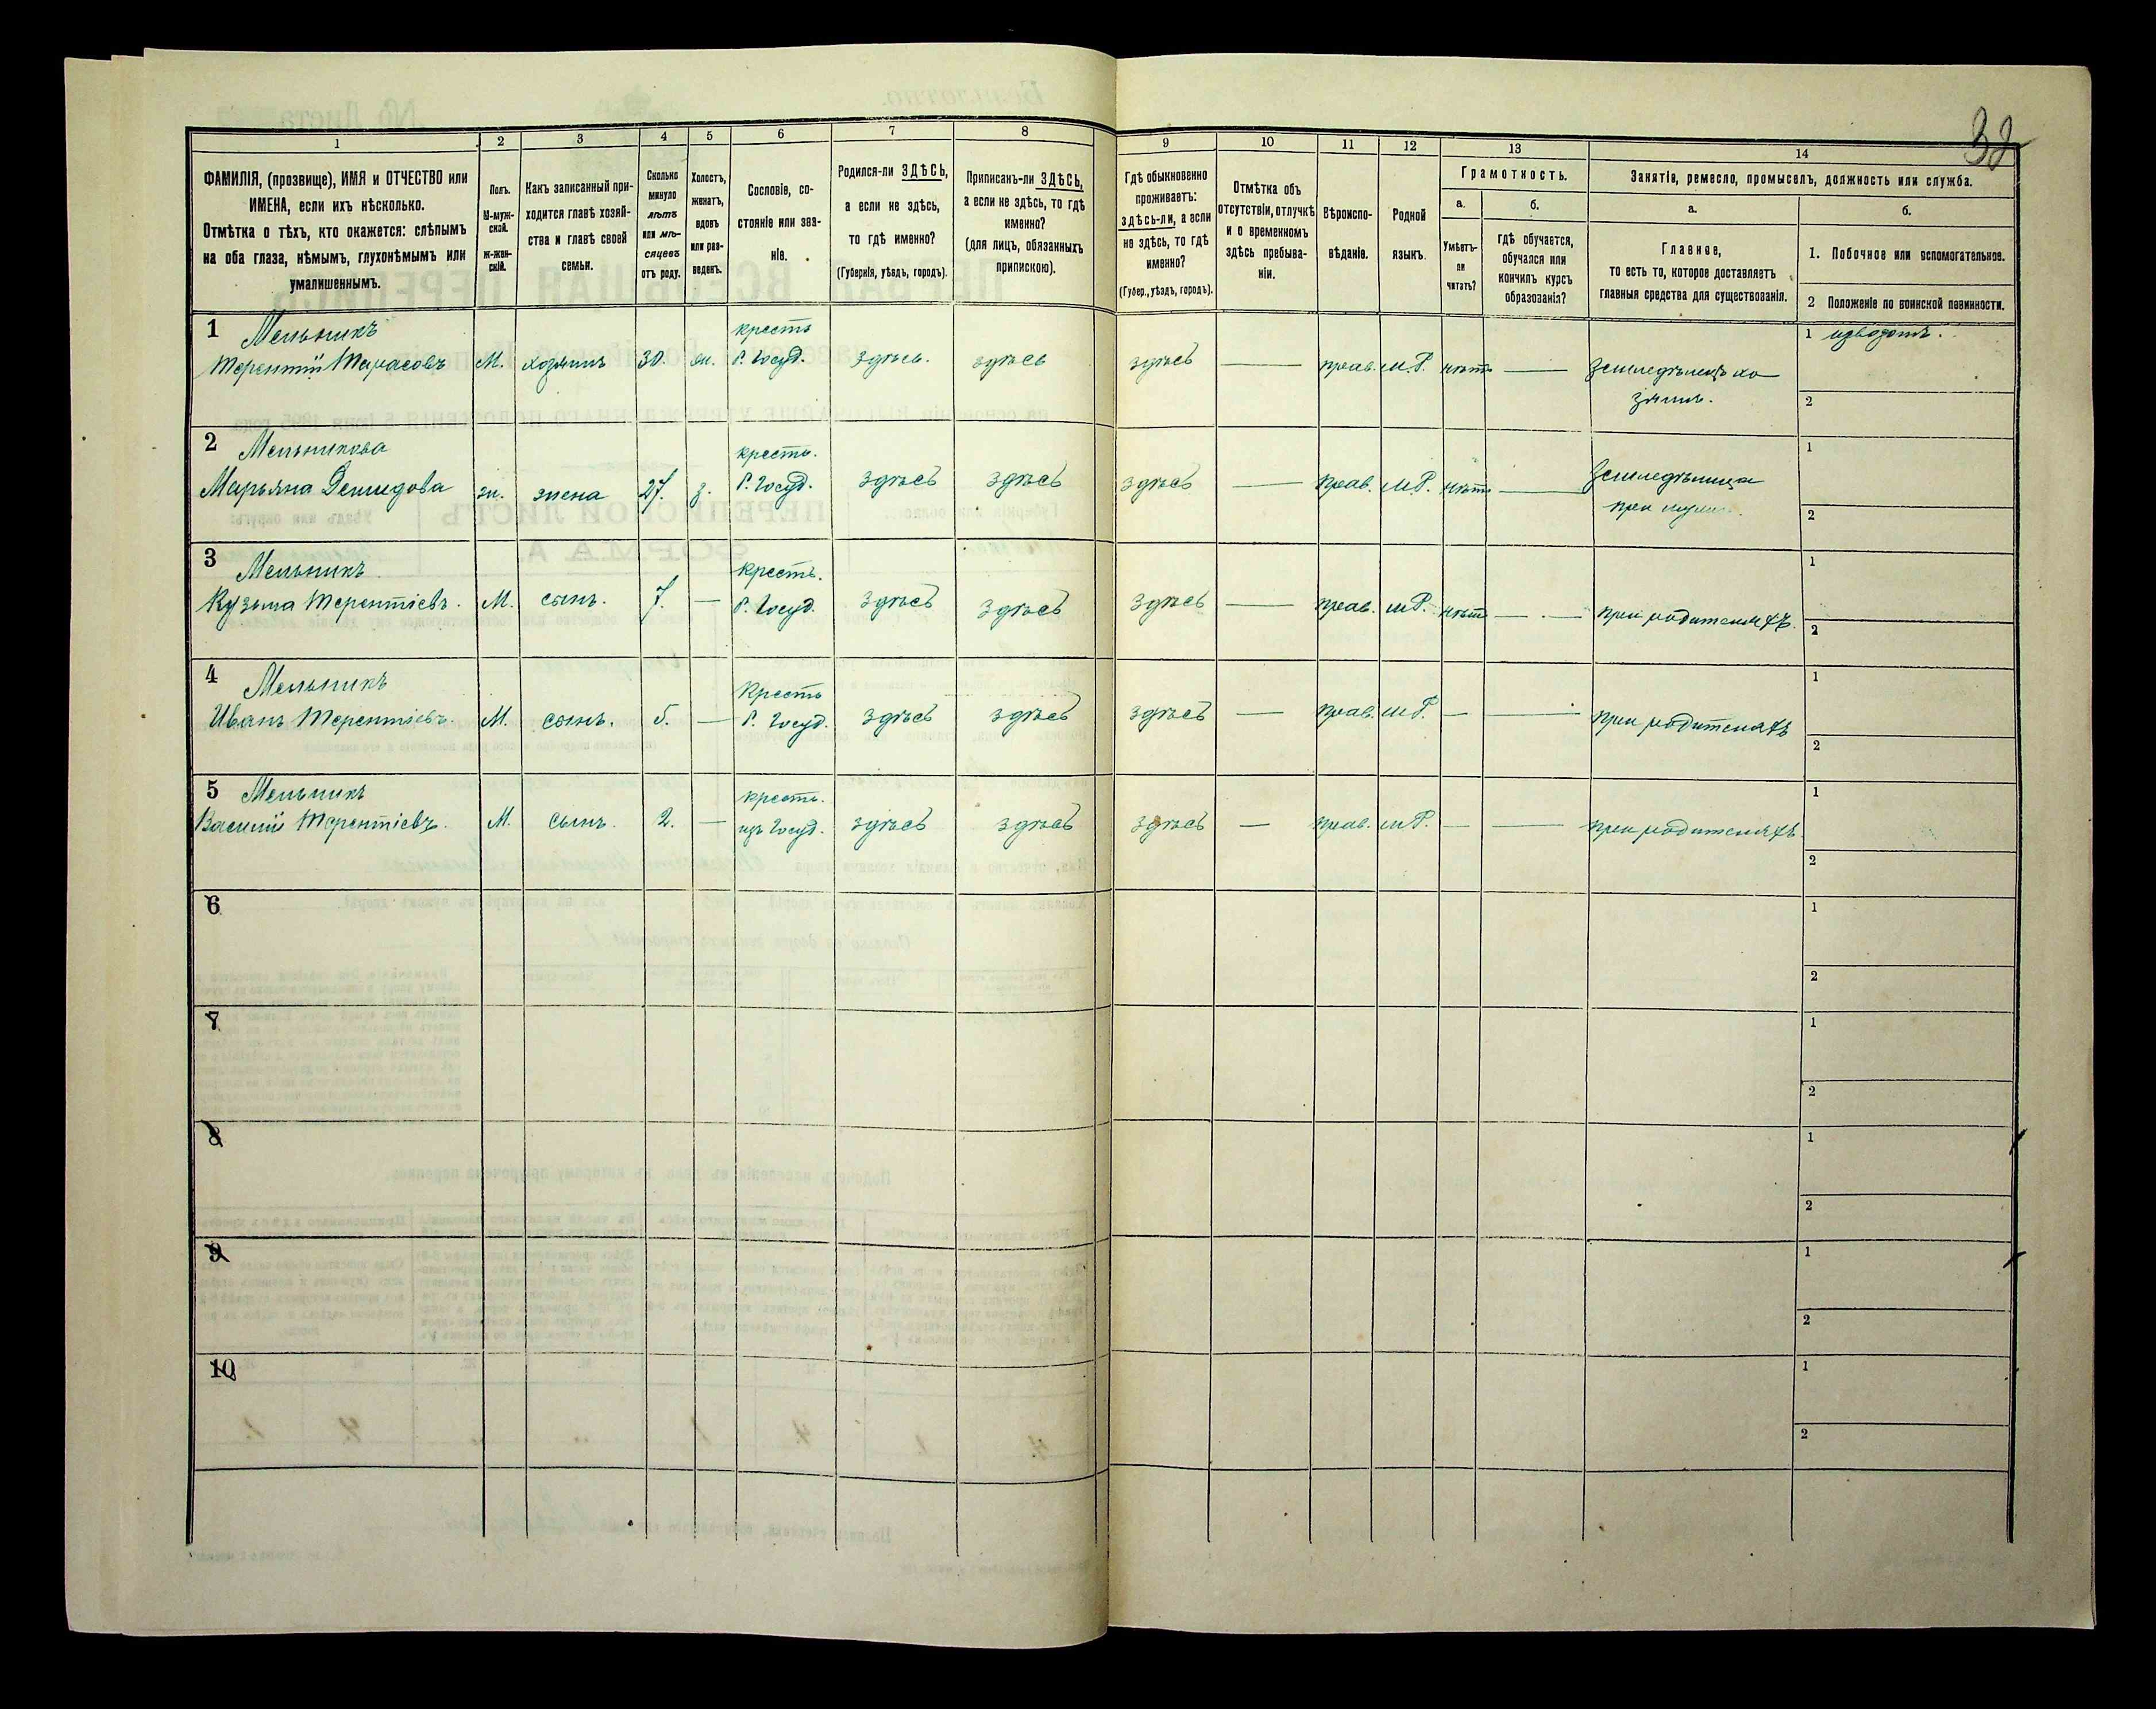 32
1 2 3 4 5 6 7 8 9 10 11 12 13 14
ФАМИЛІЯ, (прозвище), ИМЯ и ОТЧЕСТВО или
ИМЕНА, если ихъ нѣсколько.
Отмѣтка о тѣхъ, кто окажется: слѣпымъ
на оба глаза, нѣмымъ, глухонѣмымъ или
умалишеннымъ.
Полъ.
М-муж-
ской.
ж-жен-
скій.
Какъ записанный при-
ходится главѣ хозяй-
ства и главѣ своей
семьи.
Сколько
минуло
лѣтъ
или мѣ-
сяцевъ
отъ роду.
Холостъ,
женатъ,
вдовъ
или раз-
веденъ.
Сословіе, со-
стояніе или зва-
ніе.
Родился-ли ЗДѢСЬ,
а если не здѣсь,
то гдѣ именно?
(Губернія, уѣздъ, городъ).
Приписанъ-ли ЗДѢСЬ,
а если не здѣсь, то гдѣ
именно?
(для лицъ, обязанныхъ
припискою).
Гдѣ обыкновенно
проживаетъ:
здѣсь-ли, а если
не здѣсь, то гдѣ
именно?
(Губер., уѣздъ, городъ).
Отмѣтка объ
отсутствіи, отлучкѣ
и о временномъ
здѣсь пребыва-
ніи.
Вѣроиспо-
вѣданіе.
Родной
языкъ.
Грамотность.
а.
Умѣетъ-
ли
читать?
б.
гдѣ обучается,
обучался или
кончилъ курсъ
образованія?
Занятіе, ремесло, промыселъ, должность или служба.
а.
Главное,
то есть то, которое доставляетъ
главныя средства для существованія.
б.
1. Побочное или вспомогательное.
2 Положеніе по воинской повинности.
1 Мельникъ
Терентій Тарасовъ М. хозяинъ 30. ж. крестъ
Р. Госуд. здѣсь. здѣсь здѣсь — прав. М.Р. нѣтъ — Земледѣлецъ хо
зяинъ.
1
2
2 Мельникова
Марьяна Демидова ж. жена 27. з. крестъ.
Р. Госуд. здѣсь здѣсь здѣсь — прав. М.Р. нѣтъ — Земледѣлица
при
1
2
3 Мельникъ
Кузьма Терентіевъ. М. сынъ. 7. — крестъ.
Р. Госуд. здѣсь здѣсь здѣсь — прав. М.Р. нѣтъ — при родителяхъ.
1
2
4 Мельникъ
Иванъ Терентіевъ. М. сынъ. 5. — Крестъ
Р. Госуд. здѣсь здѣсь здѣсь — прав. М.Р. — — при родителяхъ
1
2
5 Мельникъ
Василій Терентіевъ. М. сынъ. 2. — крестъ.
изъ Госуд. здѣсь здѣсь здѣсь — прав. М.Р. — — при родителяхъ
1
2
6
1
2
7
1
2
8
1
2
9
1
2
10
1
2